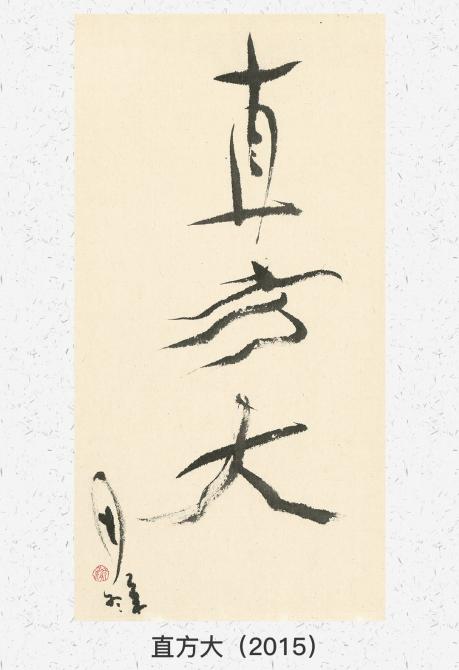 直方大
直方大（2015）